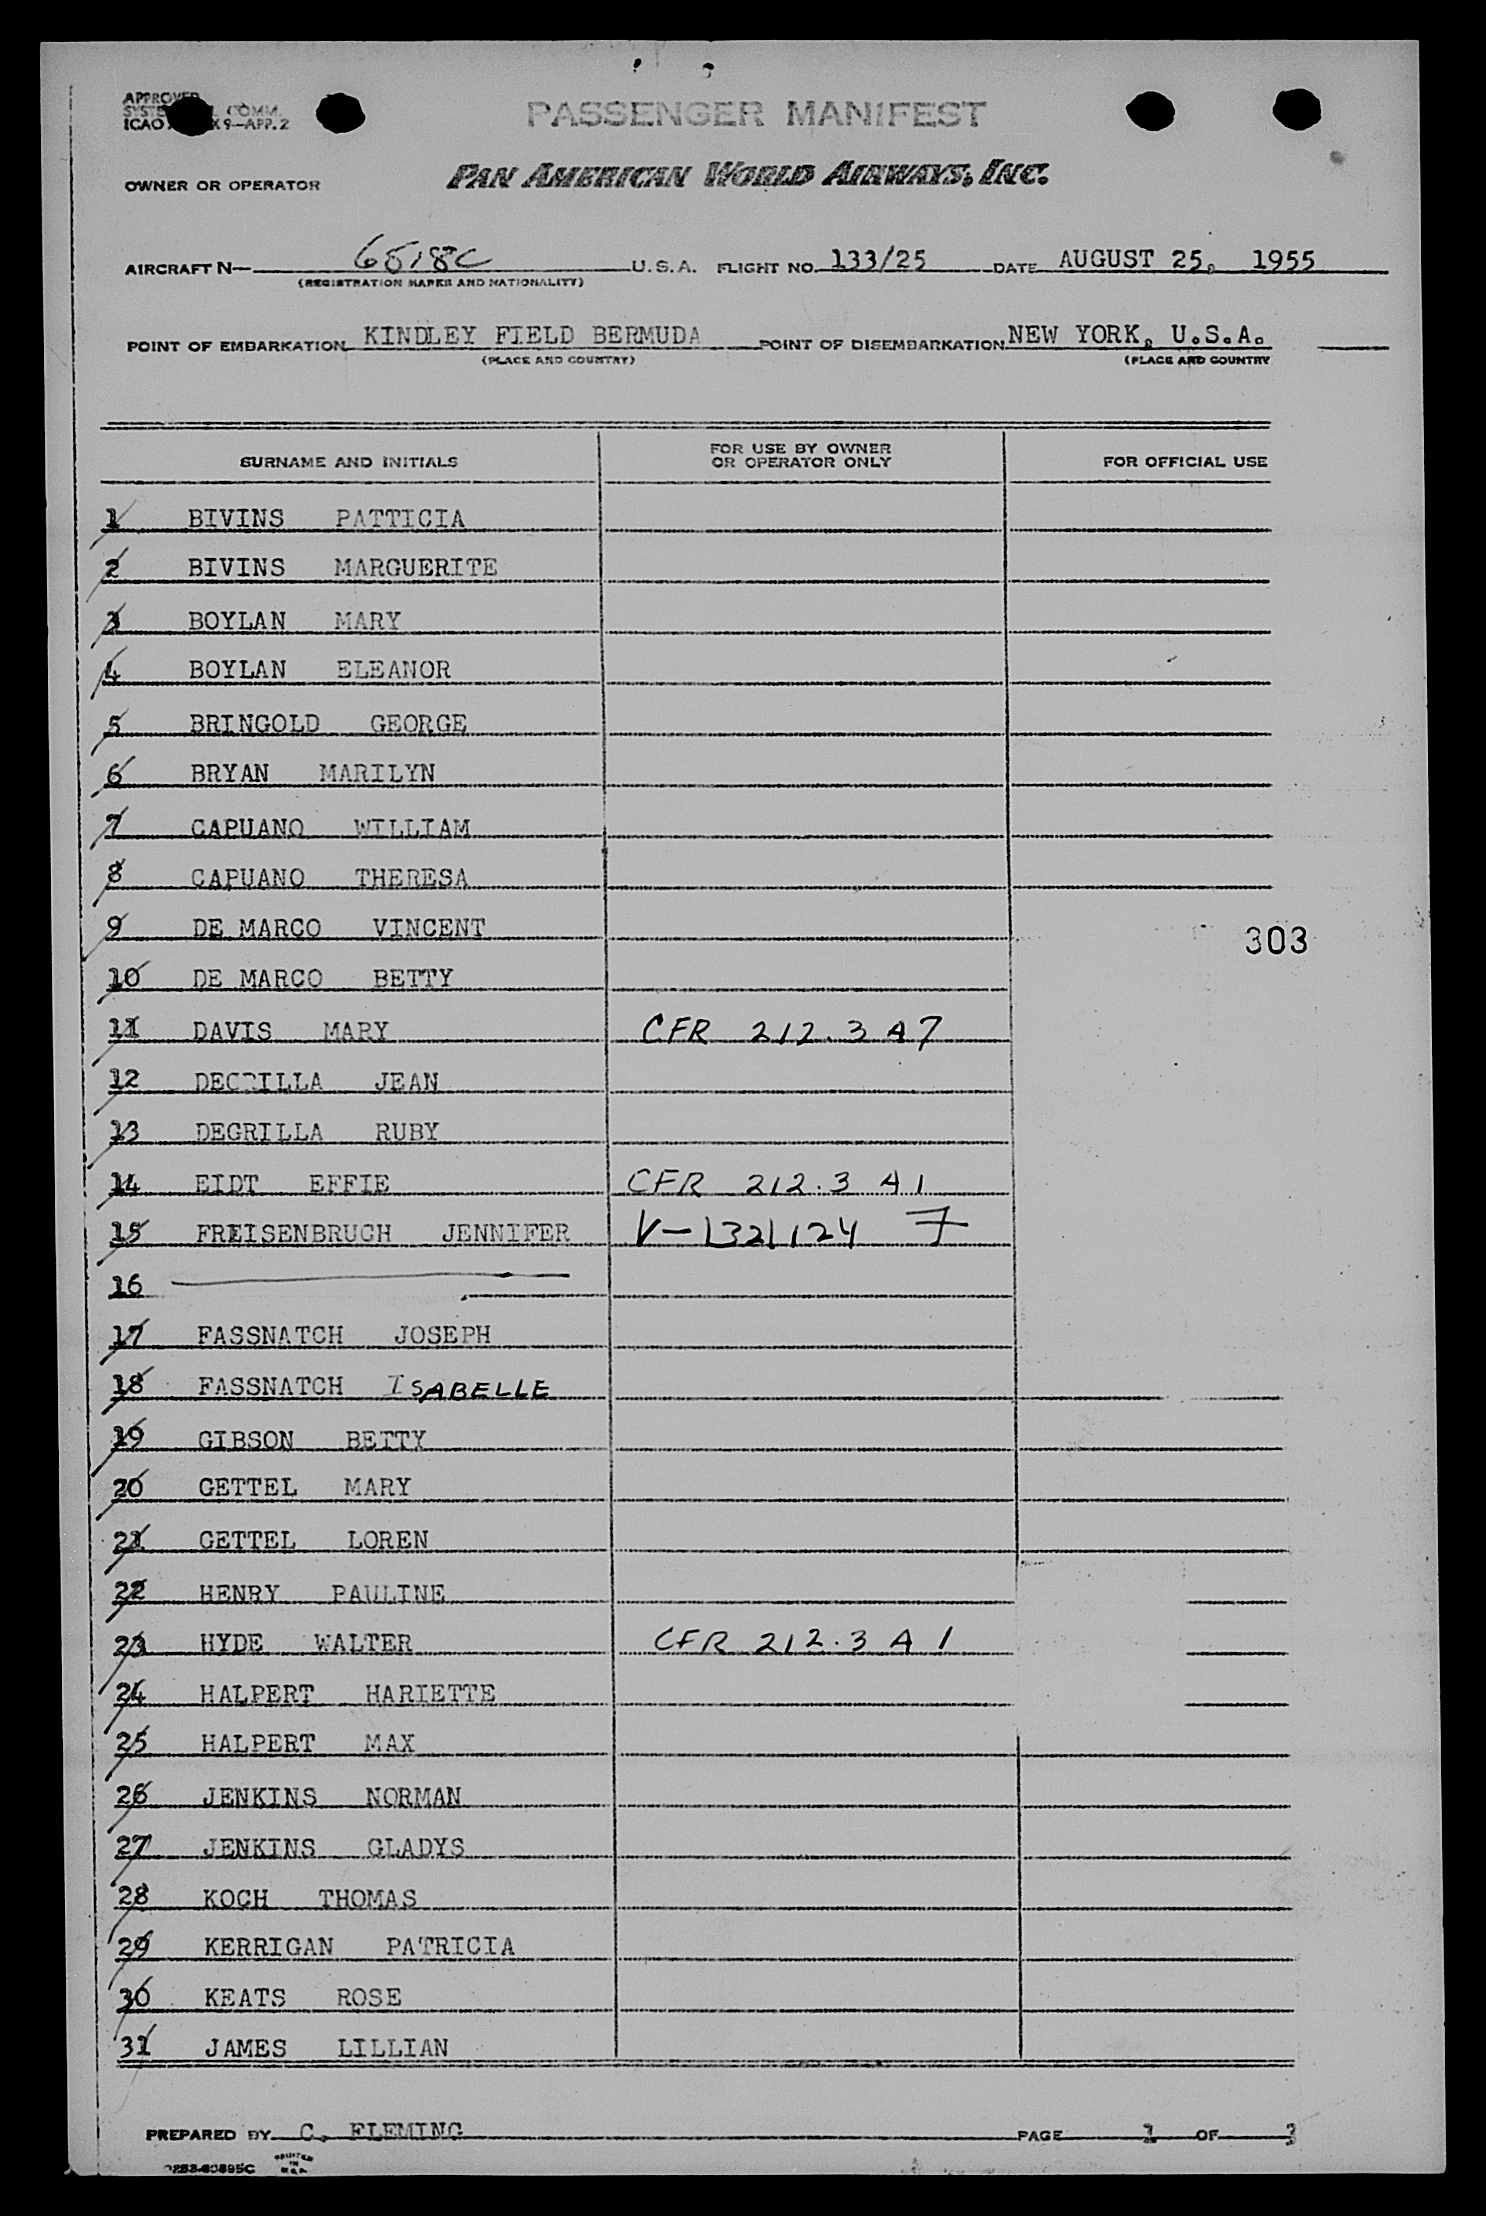 APPROVED
COMM.
ICAO 9-APP. 2
PASSENGER MANIFEST
OWNER OR OPERATOR PAN AMERICAN WORLD AIRWAYS, INC.
AIRCRAFT N- 6518C U.S.A. FLIGHT NO. 133/25 DATE AUGUST 25, 1955
(REGISTRATION MARKS AND NATIONALITY)
POINT OF EMBARKATION KINDLEY FIELD BERMUDA POINT OF DISEMBARKATION NEW YORK, U.S.A.
(PLACE AND COUNTRY) (PLACE AND COUNTRY
SURNAME AND INITIALS FOR USE BY OWNER OR OPERATOR ONLY FOR OFFICIAL USE
1 BIVINS PATTICIA
2 BIVINS MARGUERITE
3 BOYLAN MARY
4 BOYLAN ELEANOR
5 BRINGOLD GEORGE
6 BRYAN MARILYN
7 CAPUANO WILLIAM
8 CAPUANO THERESA
9 DE MARCO VINCENT
303
10 DE MARCO BETTY
11 DAVIS MARY CFR 212.3 A7
12 JEAN
13 DEGRILLA RUBY
14 EIDT EFFIE CFR 212.3 A1
15 FREISENBRUCH JENNIFER V-1321124 7
16
17 FASSNATCH JOSEPH
18 FASSNATCH ISABELLE
19 GIBSON BETTY
20 GETTEL MARY
21 GETTEL LOREN
22 HENRY PAULINE
23 HYDE WALTER CFR 212.3 A 1
24 HALPERT HARIETTE
25 HALPERT MAX
26 JENKINS NORMAN
27 JENKINS GLADYS
28 KOCH THOMAS
29 KERRIGAN PATRICIA
30 KEATS ROSE
31 JAMES LILLIAN
PREPARED BY C. FLEMING PAGE 1 OF